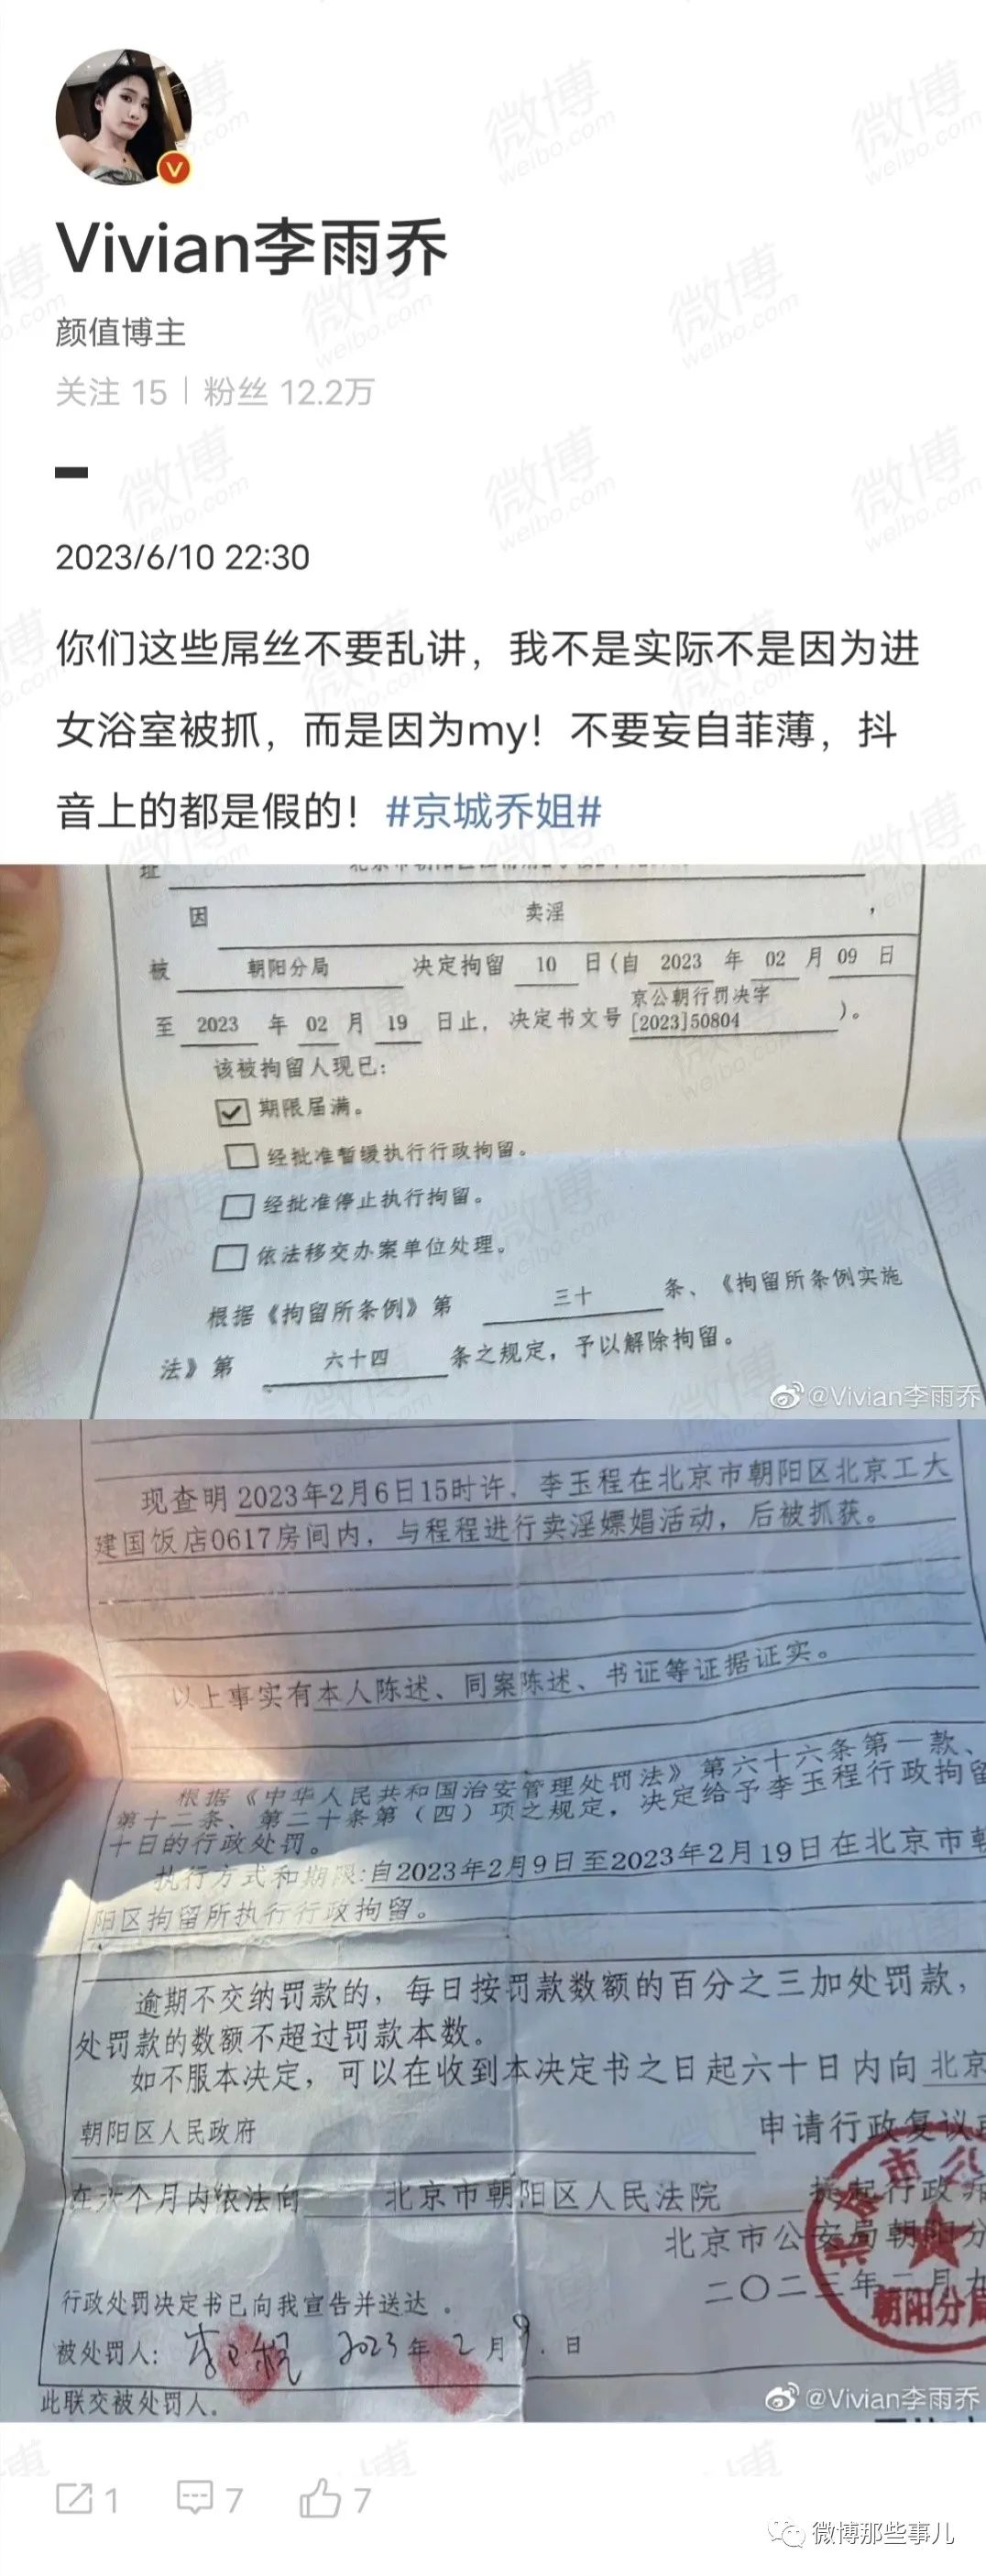 Vivian李雨乔
颜值博主
关注 15 | 粉丝 12.2万
2023/6/10 22:30
你们这些屌丝不要乱讲，我不是实际不是因为进
女浴室被抓，而是因为my！不要妄自菲薄，抖
音上的都是假的！#京城乔姐#
址
因 卖淫 ，
被 朝阳分局 决定拘留 10 日(自 2023 年 02 月 09 日
至 2023 年 02 月 19 日止，决定书文号 京公朝行罚决字
[2023]50804 )。
该被拘留人现已：
期限届满。
经批准暂缓执行行政拘留。
经批准停止执行拘留。
依法移交办案单位处理。
根据《拘留所条例》第 三十 条、《拘留所条例实施
法》第 六十四 条之规定，予以解除拘留。
@Vivian李雨乔
现查明2023年2月6日15时许，李玉程在北京市朝阳区北京工大
建国饭店0617房间内，与程程进行卖淫嫖娼活动，后被抓获。
以上事实有本人陈述、同案陈述、书证等证据证实。
根据《中华人民共和国治安管理处罚法》第六十六条第一款、
第十二条、第二十条第（四）项之规定，决定给予李玉程行政拘留
十日的行政处罚。
执行方式和期限：自2023年2月9日至2023年2月19日在北京市朝
阳区拘留所执行行政拘留。
逾期不交纳罚款的，每日按罚款数额的百分之三加处罚款，
处罚款的数额不超过罚款本数。
如不服本决定，可以在收到本决定书之日起六十日内向 北京
朝阳区人民政府 申请行政复议
在六个月内依法向 北京市朝阳区人民法院 提起行政
北京市公安局朝阳分
二〇二三年二月九
朝阳分局
行政处罚决定书已向我宣告并送达。
被处罚人：李玉程 2023年2月9日
此联交被处罚人。
@Vivian李雨乔
1 7 7
微博那些事儿
微博
weibo.com